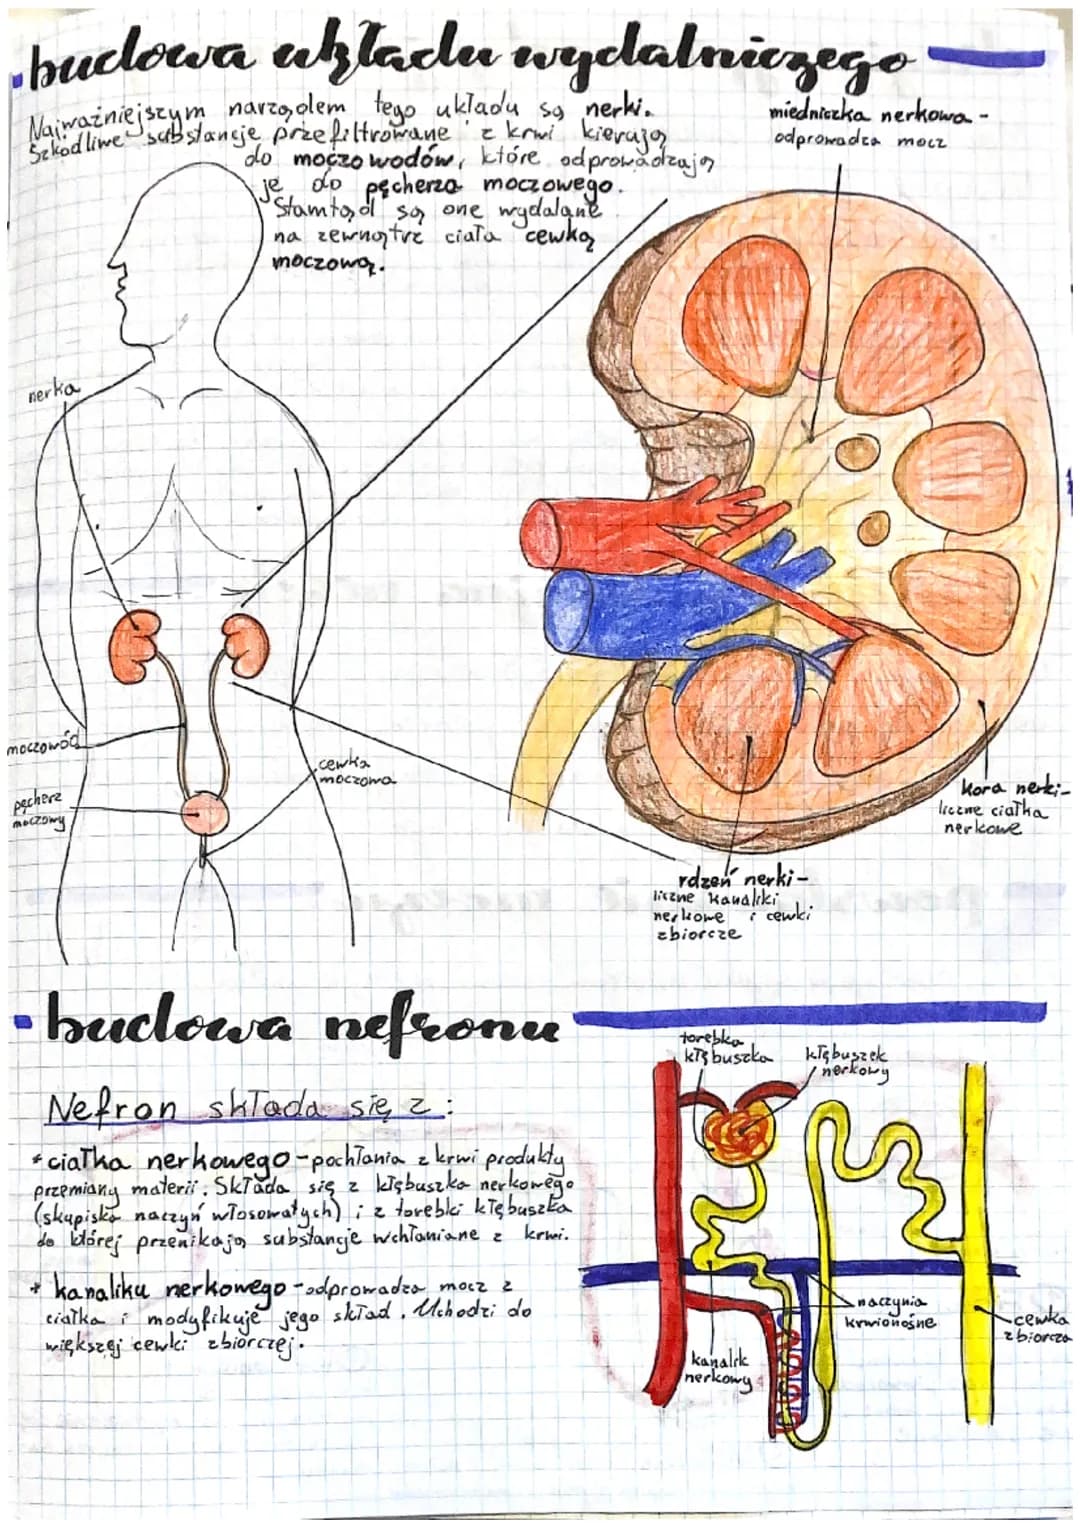 budowa układu wydalniczego
Najważniejszym narządem tego układu są nerki.
Szkodliwe substancje przefiltrowane z krwi kierują
do moczowodów, które odprowadzają
je do pęcherza moczowego.
Stamtąd są one wydalane
na zewnątrz ciała cewką
moczową.
miedniczka nerkowa -
odprowadza mocz
nerka
moczowód
pęcherz
moczowy
cewka
moczowa
kora nerki-
liczne ciałka
nerkowe
rdzeń nerki-
liczne kanaliki
nerkowe i cewki
zbiorcze
budowa nefronu
Nefron składa się z:
*ciałka nerkowego-pochłania z krwi produkty
przemiany materii. Składa się z kłębuszka nerkowego
(skupiska naczyń włosowatych) i z torebki kłębuszka
do której przenikają substancje wchłaniane z krwi.
* kanaliku nerkowego-odprowadza mocz z
ciałka i modyfikuje jego skład. Uchodzi do
większej cewki zbiorczej.
torebka
kłębuszka
kłębuszek
nerkowy
naczynia
krwionośne
cewka
zbiorcza
kanalik
nerkowy